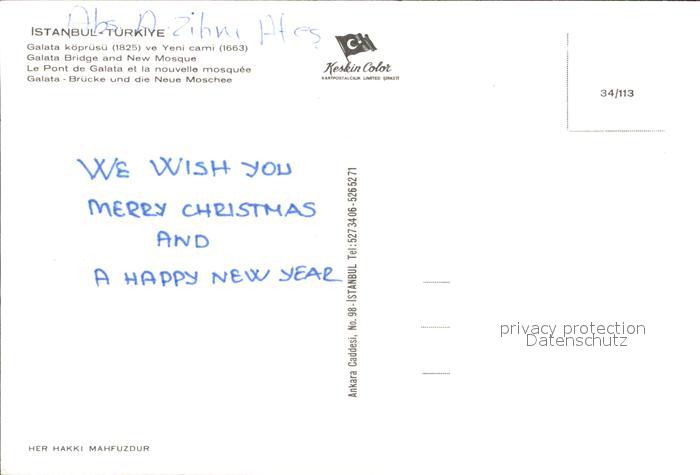 Abs. A. Zihni Ateş
İSTANBUL-TÜRKİYE
Galata köprüsü (1825) ve Yeni cami (1663)
Galata Bridge and New Mosque
Le Pont de Galata et la nouvelle mosquée
Galata - Brücke und die Neue Moschee
Keskin Color
KARTPOSTALCILIK LİMİTED ŞİRKETİ
34/113
WE WISH YOU
MERRY CHRISTMAS
AND
A HAPPY NEW YEAR
Ankara Caddesi, No. 98-İSTANBUL Tel: 5273406-5265271
privacy protection
Datenschutz
HER HAKKI MAHFUZDUR